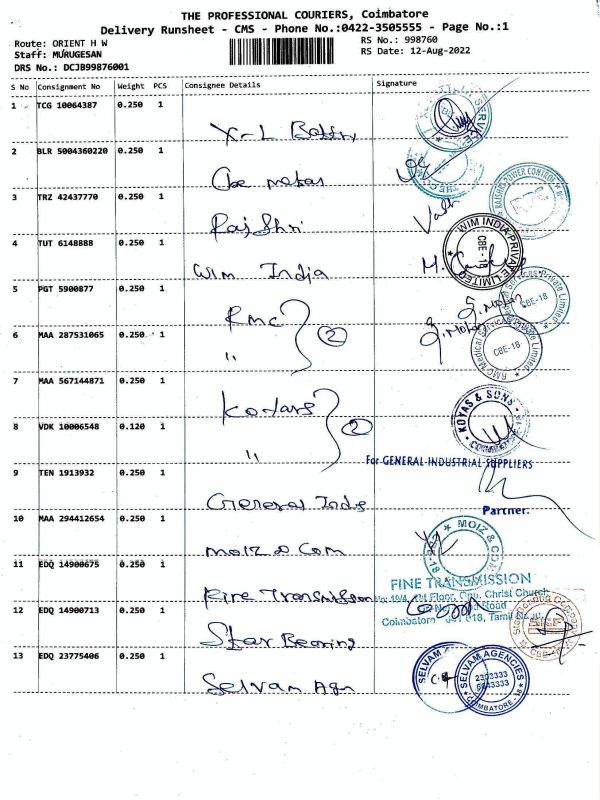 THE PROFESSIONAL COURIERS, Coimbatore
Delivery Runsheet - CMS - Phone No.:0422-3505555 - Page No.:1
Route: ORIENT H W
RS No.: 998760
Staff: MURUGESAN
RS Date: 12-Aug-2022
DRS No.: DCJB99876001
S No Consignment No Weight PCS Consignee Details Signature
1 TCG 10064387 0.250 1
X-L Battry
2 BLR 5004360220 0.250 1
Cbe motors
3 TRZ 42437770 0.250 1
Rajshri
4 TUT 6148888 0.250 1
Wim India
WIM INDIA PRIVATE LIMITED
CBE-18
5 PGT 5900877 0.250 1
RMC
CBE-18
6 MAA 287531065 0.250 1
" 2
RMC Medical Services Private Limited
CBE-18
7 MAA 567144871 0.250 1
Kovais
KOYAS & SONS
8 VDK 10006548 0.120 1
" 2
For GENERAL INDUSTRIAL SUPPLIERS
9 TEN 1913932 0.250 1
General Inds
Partner.
10 MAA 294412654 0.250 1
Moiz & Com
MOIZ & CO
11 EDQ 14900675 0.250 1
Fine Transmission
FINE TRANSMISSION
Floor, Opp. Christ Church,
Road
Coimbatore - 641 018, Tamil Nadu
12 EDQ 14900713 0.250 1
Star Bearing
13 EDQ 23775406 0.250 1
Selvam Agn
SELVAM
SELVAM AGENCIES
COIMBATORE - 18